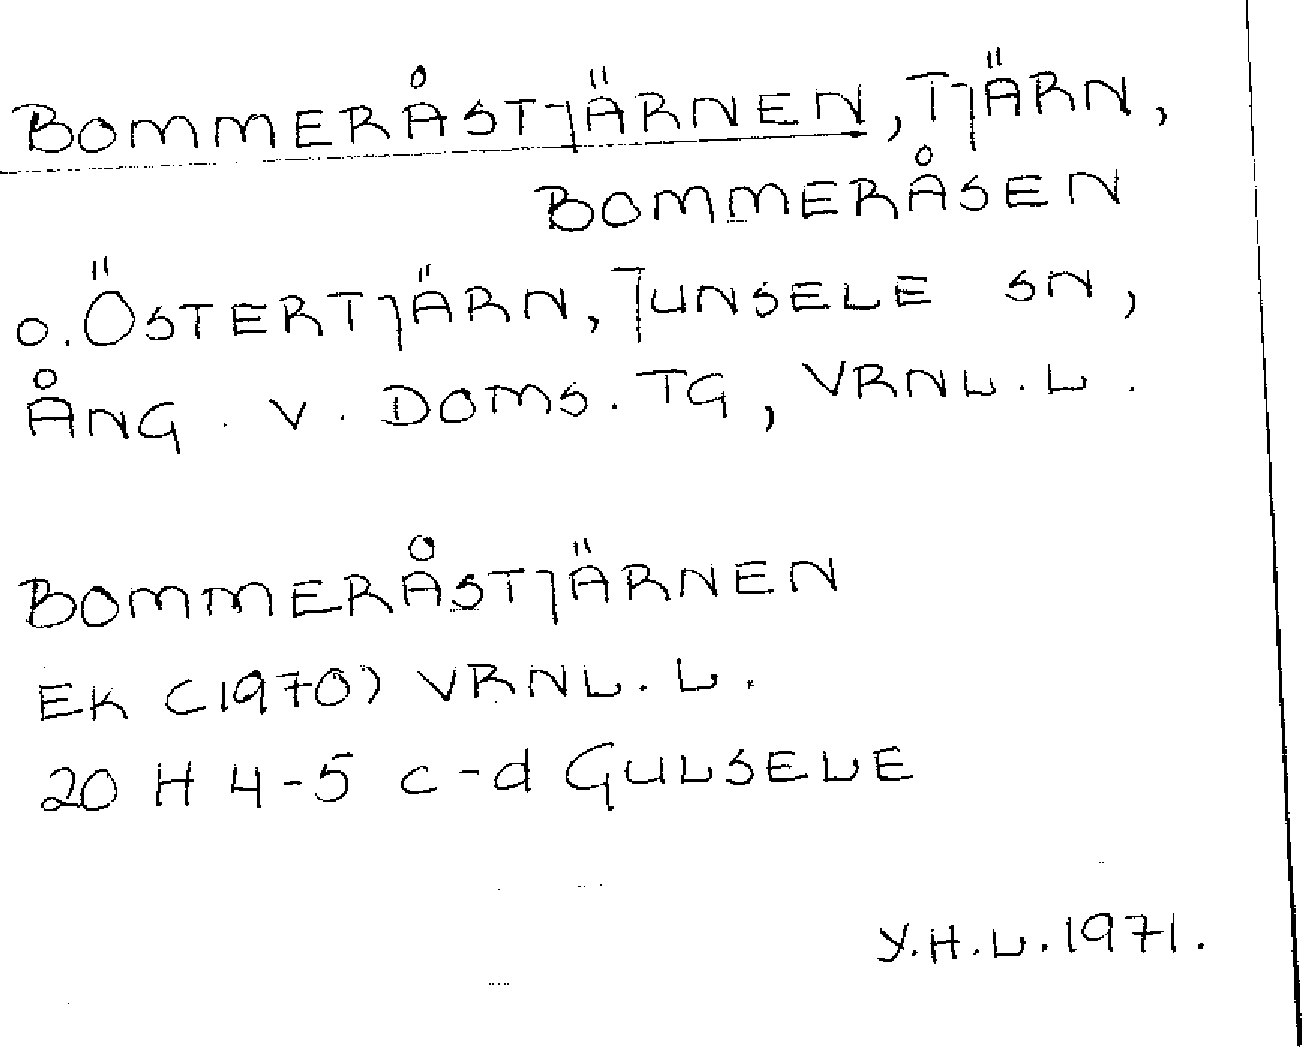 BOMMERÅSTJÄRNEN, TJÄRN,
BOMMERÅSEN
O. ÖSTERTJÄRN, JUNSELE SN,
ÅNG. V. DOMS. TG, VRNL. L.
BOMMERÅSTJÄRNEN
EK (1970) VRNL. L.
20 H 4-5 c-d GULSELE
Y.H.L. 1971.